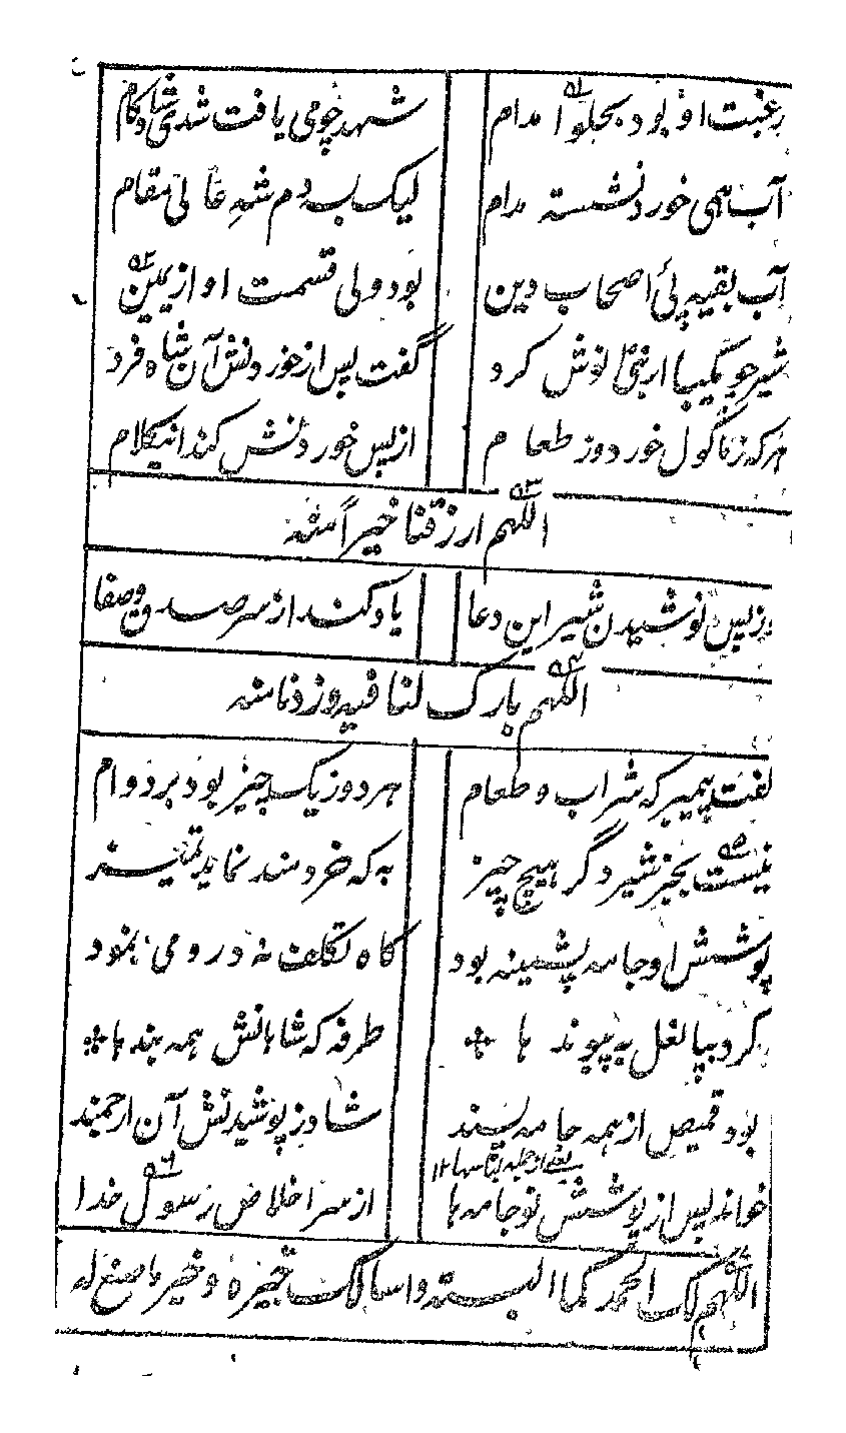 رغبت او بود بحلوا مدام شهد چو می یافت شدی شادکام
آب همی خورد نشسته مدام لیک به دم شه عالی مقام
آب بقیه پئ اصحاب دین بود ولی قسمت او از یمین
شیر چو یکبار نبی نوش کرد گفت پس از خوردنش آن شاه فرد
هر که ز ماکول خورد وز طعام از پس خوردنش کند این کلام
اللهم ارزقنا خیراً منه
وز پس نوشیدن شیر این دعا یاد کند از سر صدق و صفا
اللهم بارک لنا فیه وزدنا منه
گفت پیمبر که شراب و طعام هر دو ز یک چیز بود بردوام
نیست بجز شیر دگر هیچ چیز به که خردمند نماید تمیز
پوشش او جامه پشمینه بود گاه تکلف نه درو می نمود
کرد بپا نعل به پیوند ها طرفه که شاهانش همه بنده ها
بود قمیص از همه جامه پسند شاد ز پوشیدنش آن ارجمند
خواند پس از پوشش نو جامه ها از سر اخلاص رسول خدا
اللهم لک الحمد کما البسته واسالک خیره وخیر ما صنع له